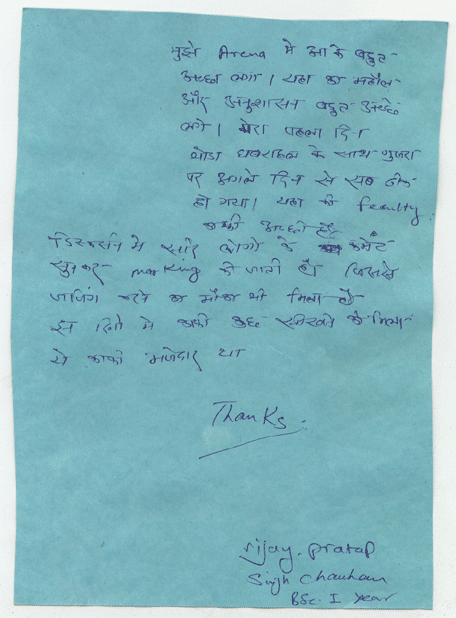 मुझे Arena मे आ के बहुत
अच्छा लगा। यहा का महौल
और अनुशासन बहुत अच्छे
लगे। मेरा पहला दिन
थोडा घबराहट के साथ गुजरा
पर अगले दिन से सब ठीक
हो गया। यहा की feculty
काफी अच्छी है
डिस्कशन मे सारे लोगो के कमेंट
सुनकर marking की जाती है। जिससे
जजिंग करने का मौका भी मिला है
इन दिनो मे काफी कुछ सीखने को मिला
ये काफी मजेदार था
Thanks.
vijay. pratap
Singh Chauhan
BSc. I year